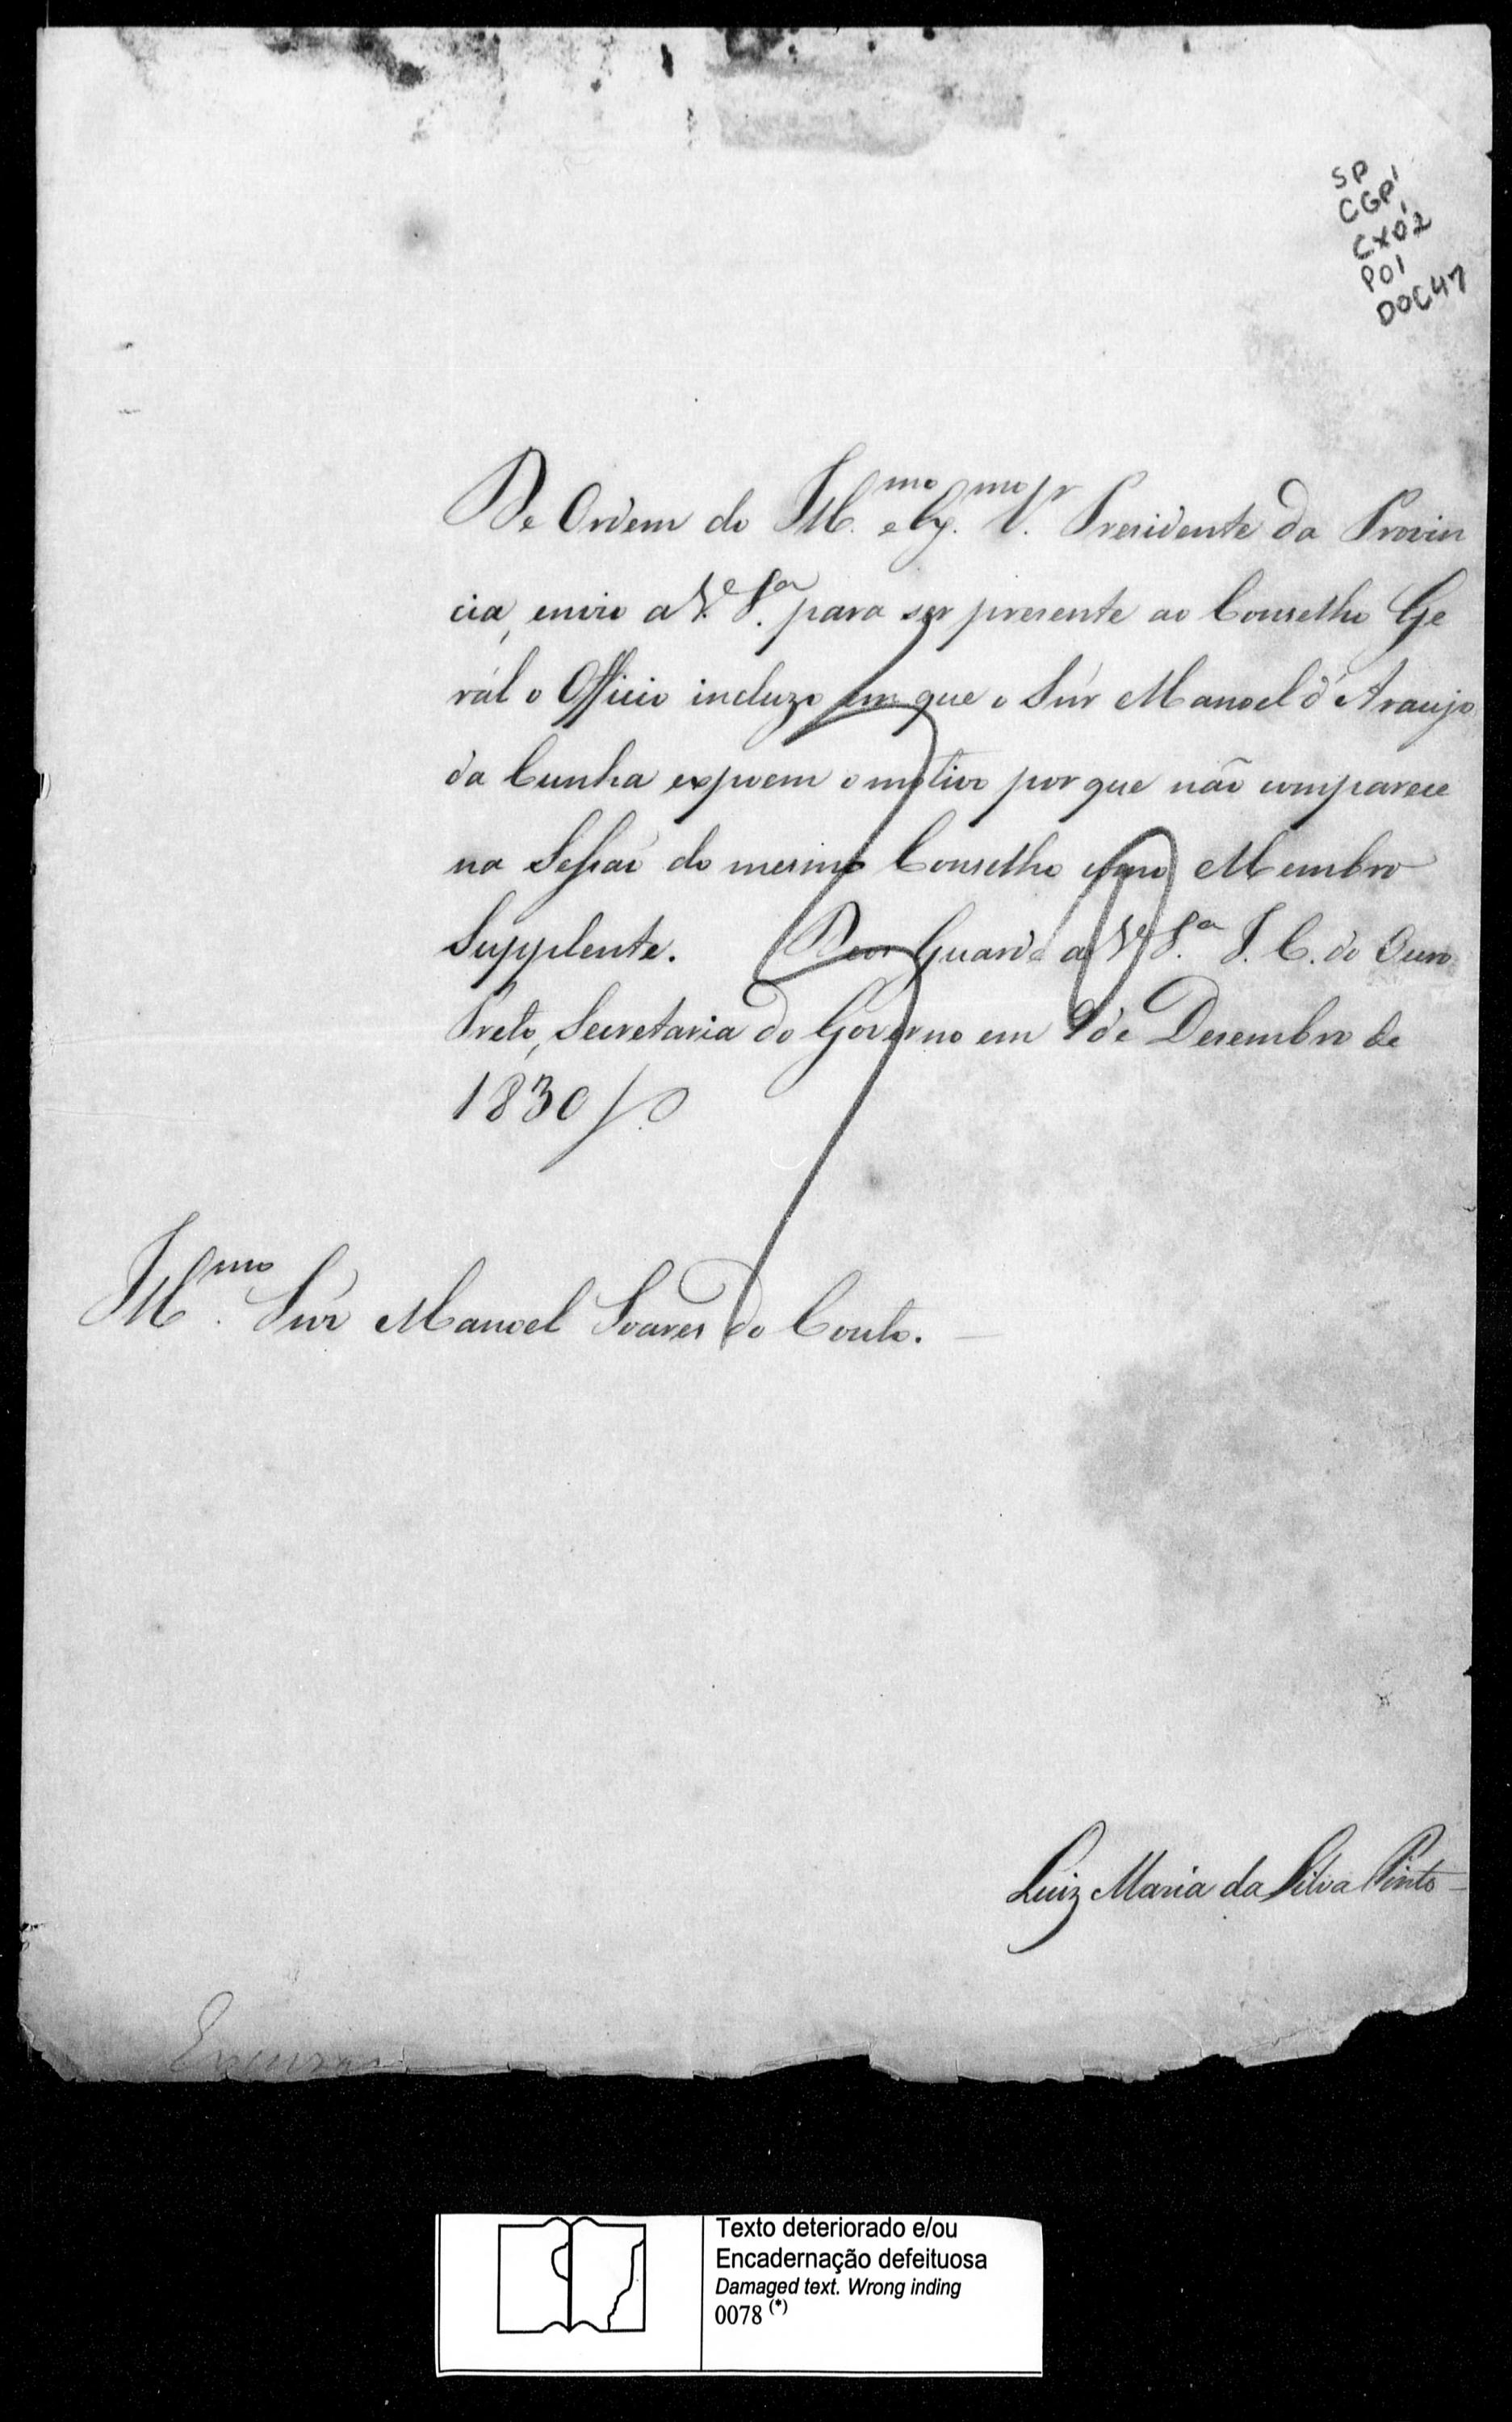 SP
CGP1
CX02
P01
DOC47
De Ordem do Ill.mo e Ex.mo Sr. V. Presidente da Provin
cia, envio a V.S.a para ser presente ao Conselho Ge
rál o Officio incluzo em que o Snr Manoel d'Araujo
da Cunha expoem o motivo por que não comparece
na Sessaõ do mesmo Conselho como Membro
Supplente. Deos Guarde a V.S.a I. C. do Ouro
Preto, Secretaria do Governo em 9 de Desembro de
1830
Ill.mo Snr Manoel Soares do Couto.
Luiz Maria da Silva Pinto
Texto deteriorado e/ou
Encadernação defeituosa
Damaged text. Wrong inding
0078 (*)